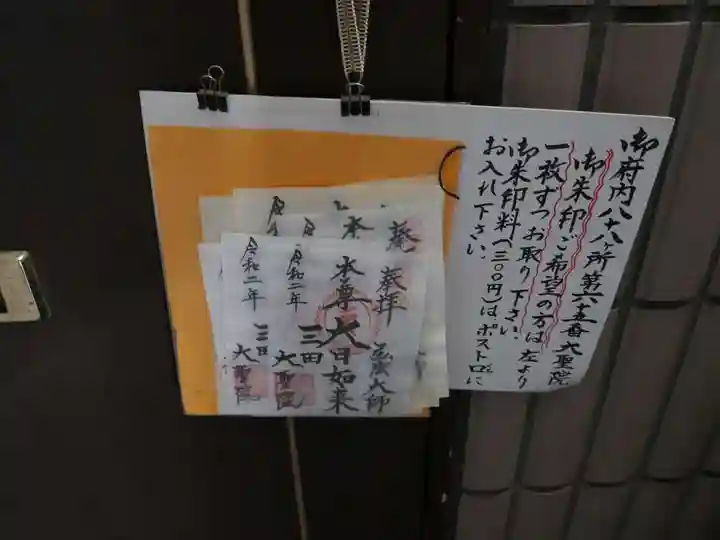 御府内八十八ヶ所第六十五番大聖院
御朱印ご希望の方は左より
一枚ずつお取り下さい。
御朱印料(三〇〇円)は、ポスト口に
お入れ下さい。
奉拝
本尊大日如来
弘法大師
三田
大聖院
令和二年
三田
大聖院
令和二年